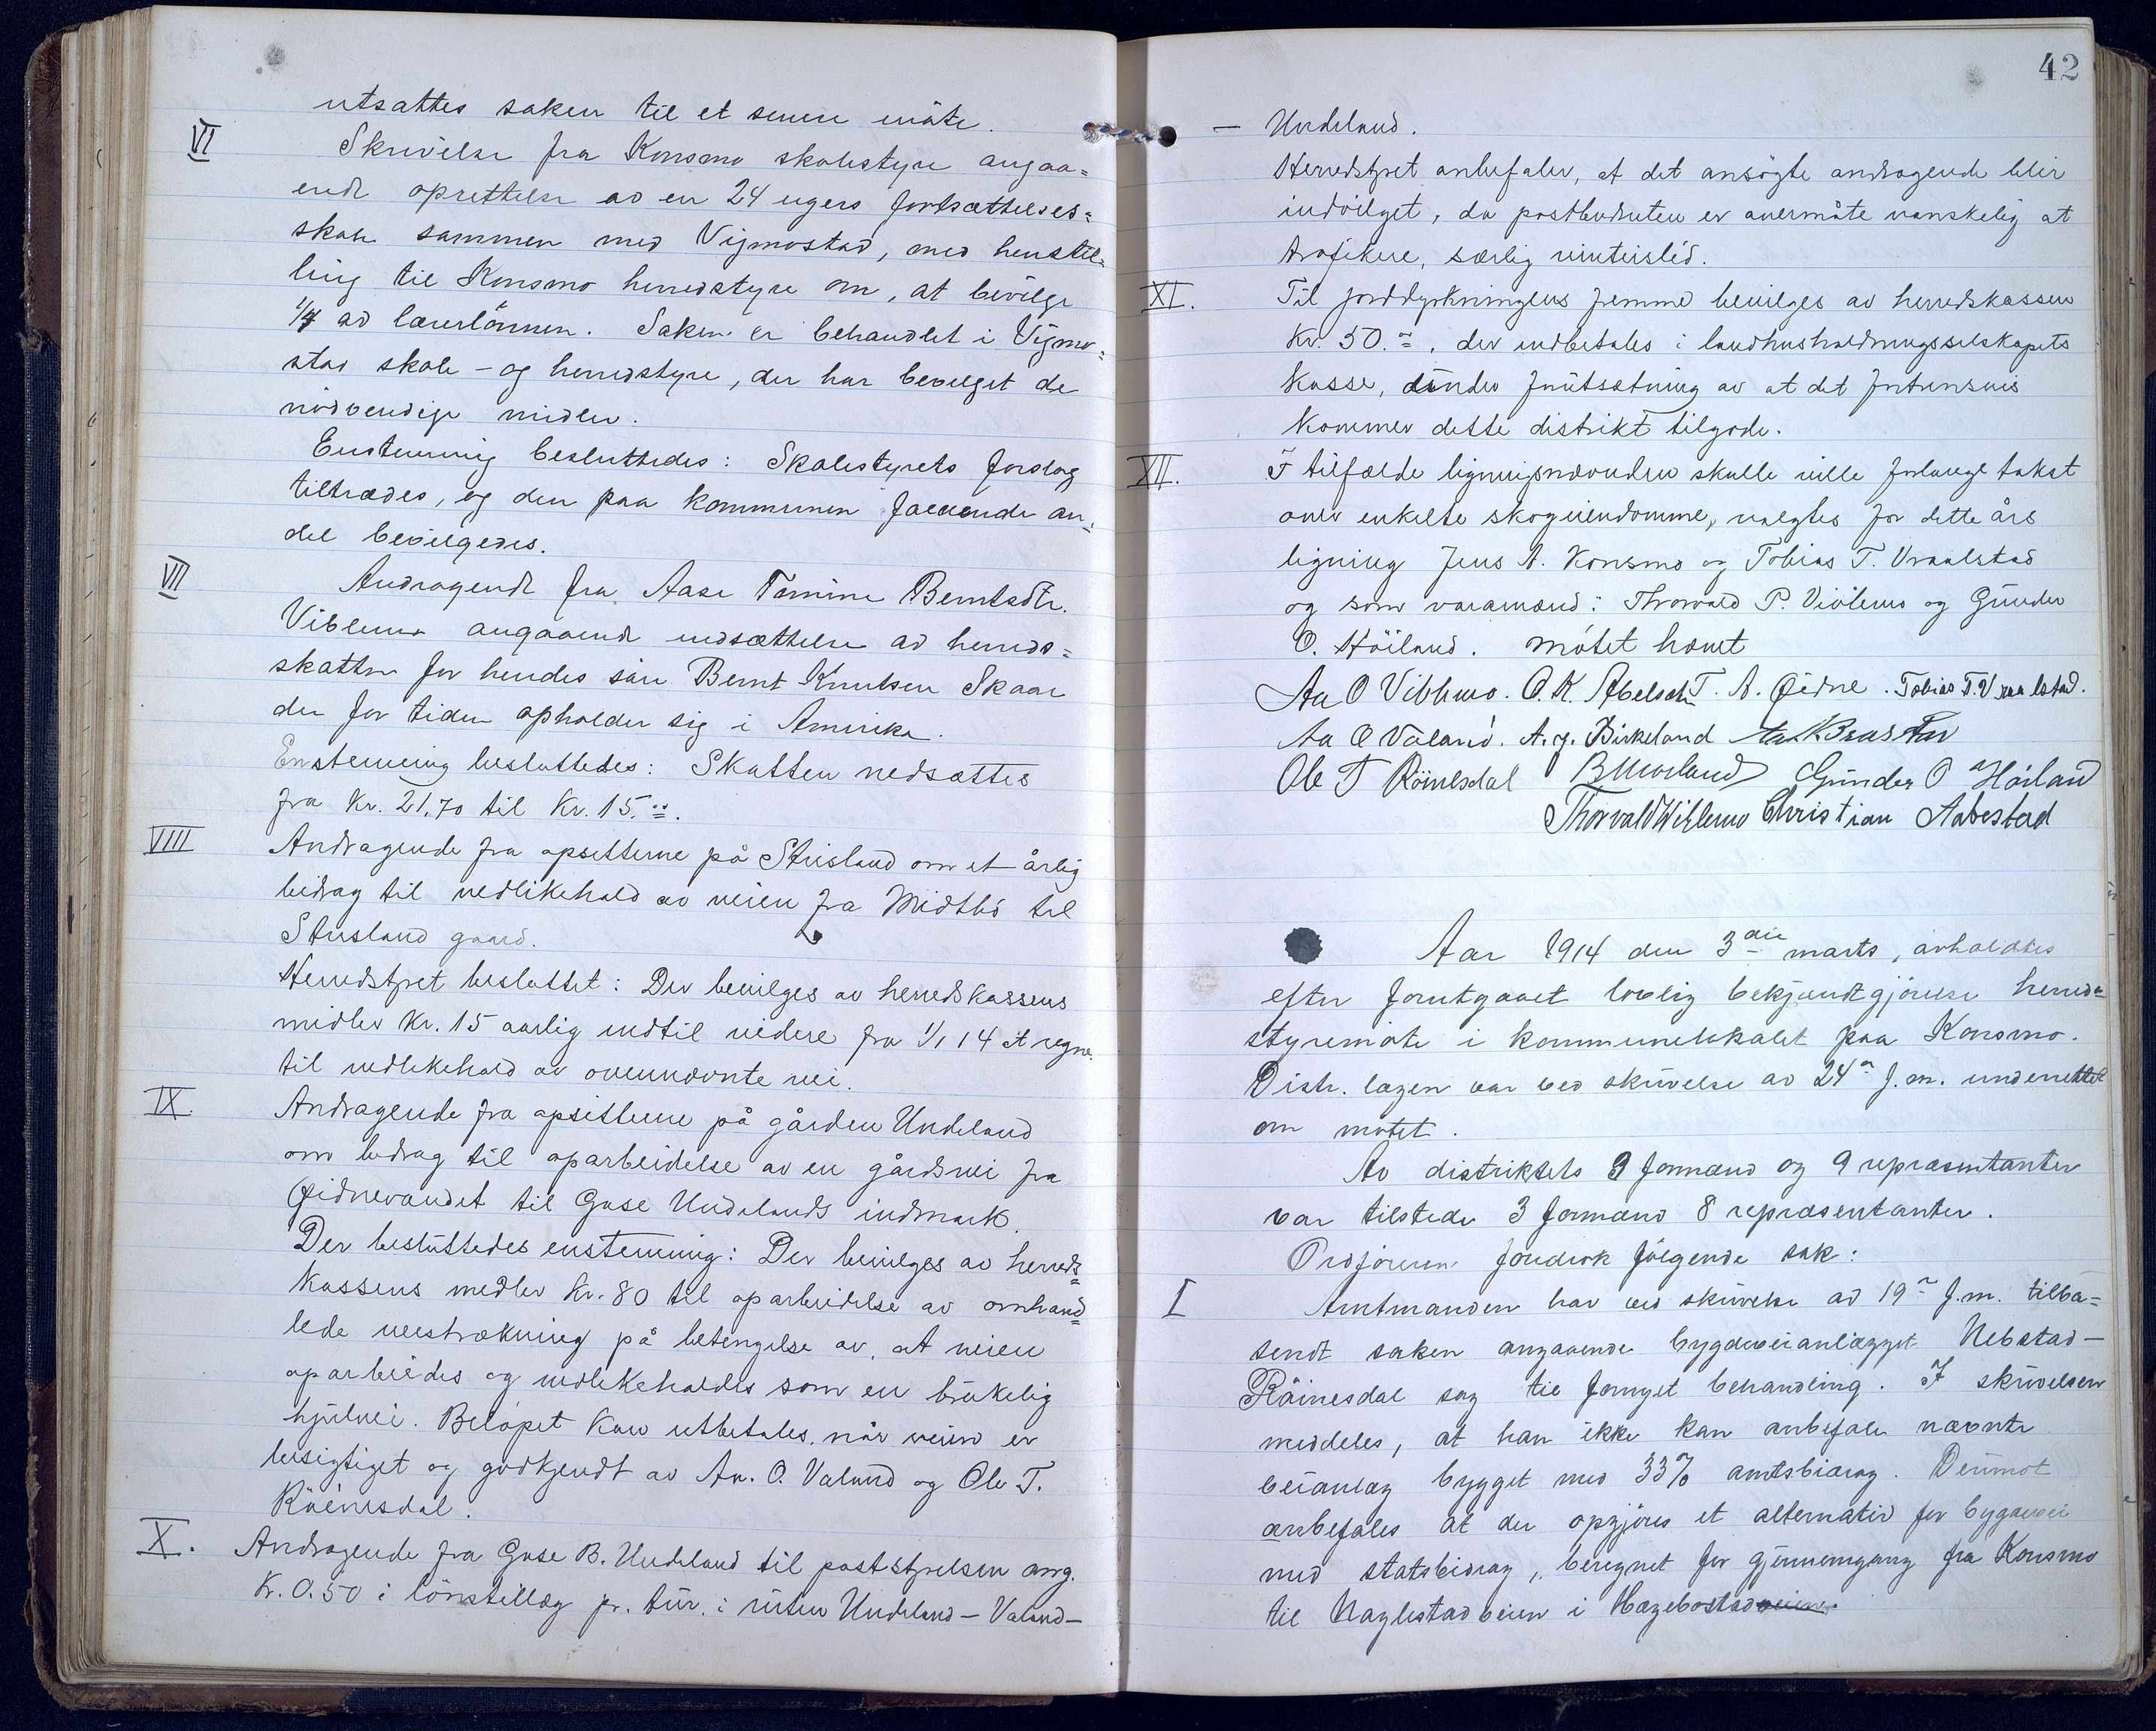 utsattes saken til et senere möte.
VI
Skrivelse fra Konsmo skolestyre angaa=
ende oprettelse av en 24 ugers fortsættelses=
skole sammen med Vigmostad, med henstil=
ling til Konsmo herredstyre om, at bevilge
1/4 av lærerlönnen. Saken er behandlet i Vigmo=
stad skole- og herredstyre, der har bevilget de
nödvendige midler.
Enstemmig besluttedes: Skolestyrets forslag
tiltrædes, og den paa kommunen faldende an=
del bevilgedes.
VII
Andragende fra Aase Tomine Berntsdtr.
Viblemo angaaende nedsættelse av herreds=
skatten for hendes sön Bernt Knutsen Skaar
der for tiden opholder sig i Amerika.
Enstemmig besluttedes: Skatten nedsættes
fra kr. 21,70 til kr. 15.00.
VIII
Andragende fra opsitterne på Stusland om et årlig
bidrag til vedlikehold av veien fra Midtbö til
Stusland gaard.
Herredstyret besluttet: Der bevilges av herredskassens
midler kr. 15 aarlig indtil videre fra 1/1 14 at regne
til vedlikehold av ovennævnte vei.
IX.
Andragende fra opsitterne på gården Undeland
om bidrag til oparbeidelse av en gårdsvei fra
Øidnevandet til Guse Undelands indmark.
Der besluttedes enstemmig: Der bevilges av herreds=
kassens midler kr. 80 til oparbeidelse av omhand=
lede veistrækning på betingelse av, at veien
oparbeides og vedlikeholdes som en brukelig
hjulvei. Belöpet kan utbetales, når veien er
besigtiget og godkjendt av Aa. O. Valand og Ole T.
Röinesdal.
X.
Andragende fra Guse B. Undeland til poststyrelsen ang.
kr. 0.50 i lönstillæg pr. tur. i ruten Undeland - Valand -
42
- Undeland.
Herredstyret anbefaler, at det ansögte andragende blir
indvilget, da postbudruten er overmåte vanskelig at
trafikere, særlig vinterstid.
XI.
Til jorddyrkningens fremme bevilges av herredskassen
kr. 50.-, der indbetales i landhusholdningsselskapets
kasse, under forutsætning av at det
kommer dette distrikt tilgode.
XII.
I tilfælde ligningsnævnden skulle ville forlange takst
over enkelte skogeiendomme, valgtes for dette års
ligning Jens A. Konsmo og Tobias T. Vraalstad
og som varamænd: Thorvald P. Viblemo og Gunder
O. Höiland. Mötet hævet
Aa O Viblemo. O. K. Abelseth T. A. Øidne. Tobias T. Vraalstad.
Aa O Valand. A. g. Birkeland
Ole T Röinesdal B Moeland Gunder O Höiland
Thorvald Wiblemo Christian Aabestad
Aar 1914 den 3die marts, avholdtes
efter forutgaaet lovlig bekjendtgjörelse herreds=
styremöte i kommunelokalet paa Konsmo.
Distr. lægen var ved skrivelse av 24de f.m. underrettet
om mötet.
Av distriktets 3 formænd og 9 repræsentanter
var tilstede 3 formænd 8 repræsentanter.
Ordföreren foredrok fölgende sak:
I
Amtmanden har ved skrivelse av 19de f.m. tilba=
sendt saken angaaende bygdeveianlægget Uebstad -
Röinesdal sog til fornyet behandling. I skrivelsen
meddeles, at han ikke kan anbefale nævnte
veianlæg bygget med 33% amtsbidrag. Derimot
anbefales at der opgjöres et alternativ for bygdevei
med statsbidrag, beregnet for gjennemgang fra Konsmo
til Naglestadveien i Hægebostad